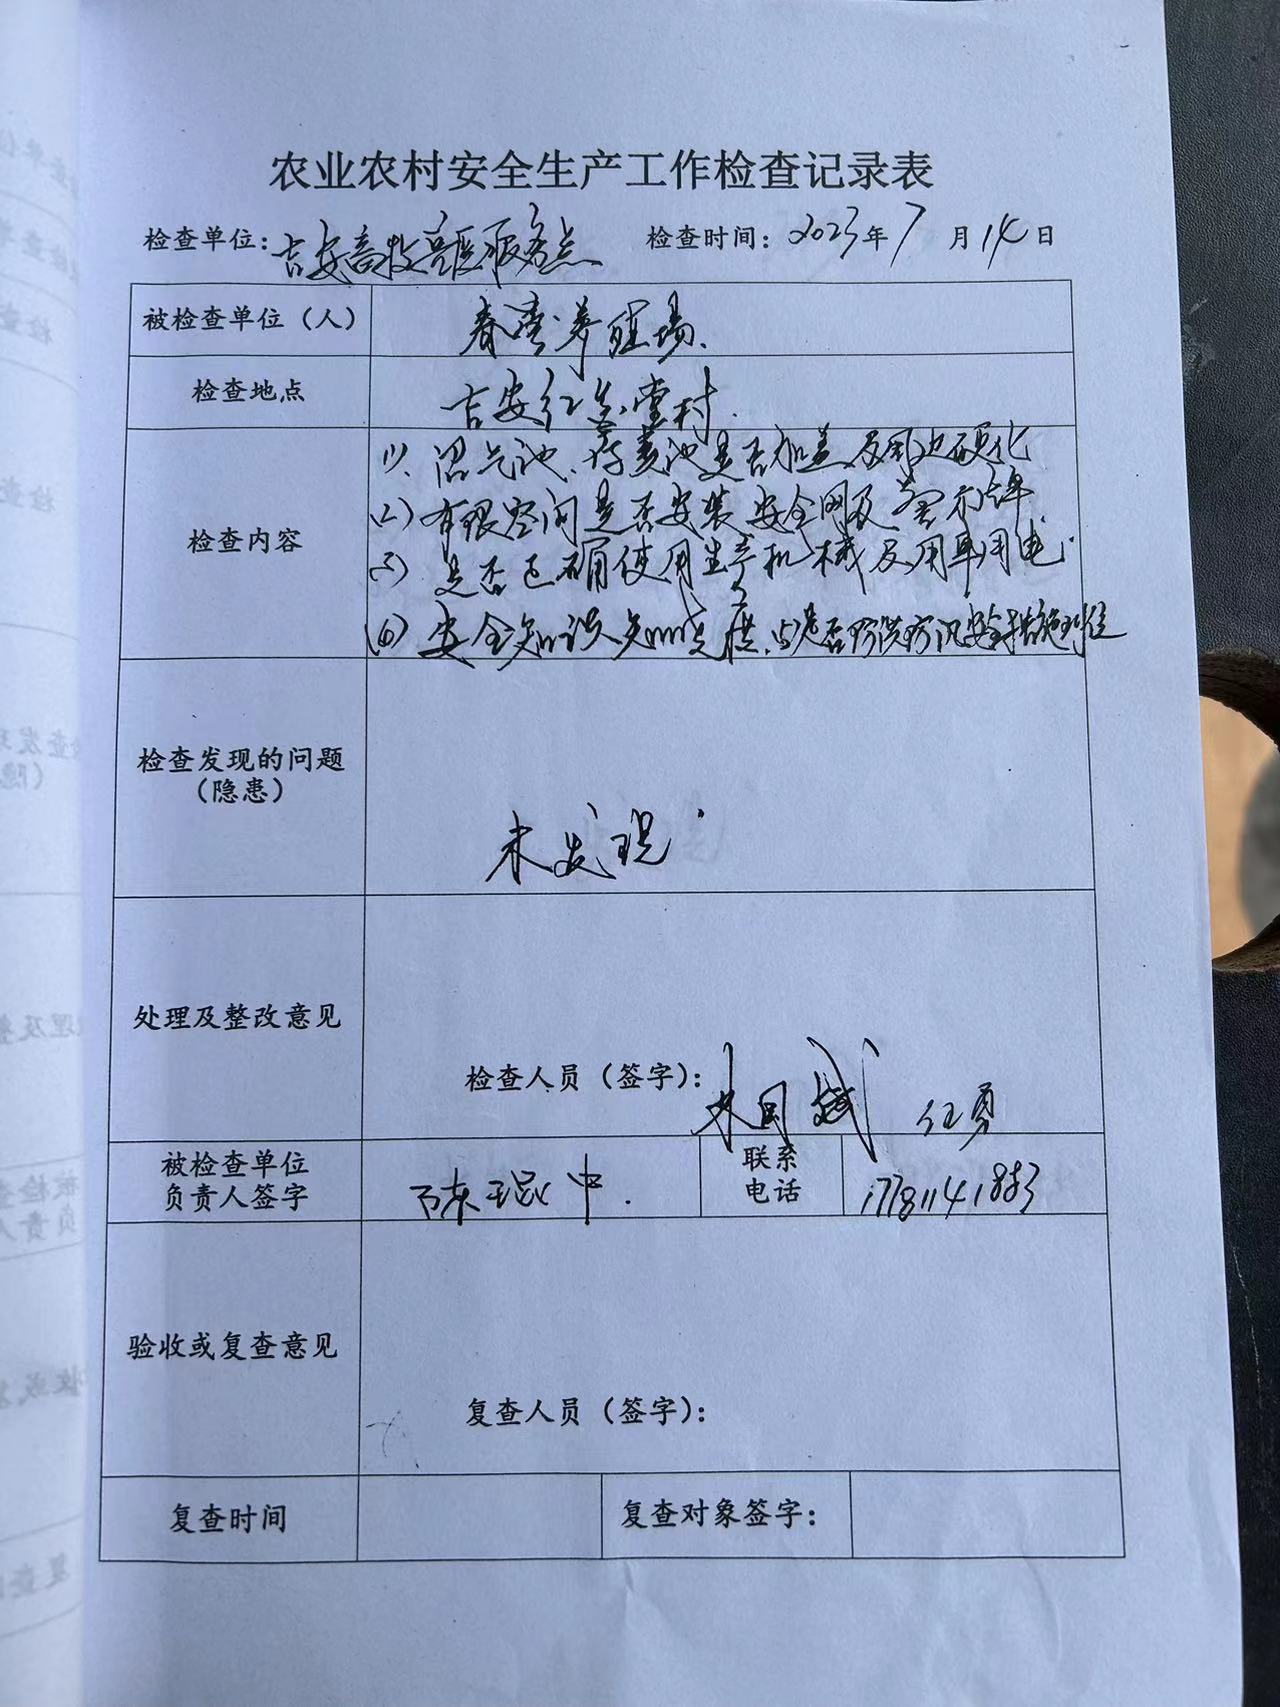 农业农村安全生产工作检查记录表
检查单位：吉安畜牧兽医服务点 检查时间：2023年7月14日
被检查单位（人） 春湾养殖场.
检查地点 吉安红堂村.
检查内容
(1)、沼气池、存粪池是否加盖及周边硬化
(2) 有限空间是否安装安全网及警示牌
(3) 是否正确使用生产机械及用单用电.
(4) 安全知识知晓度.(5)是否防洪防汛安全措施到位
检查发现的问题
（隐患）
未发现.
处理及整改意见
检查人员（签字）： 任勇
被检查单位
负责人签字
陈琨中.
联系
电话
17781141883
验收或复查意见
复查人员（签字）：
复查时间 复查对象签字：